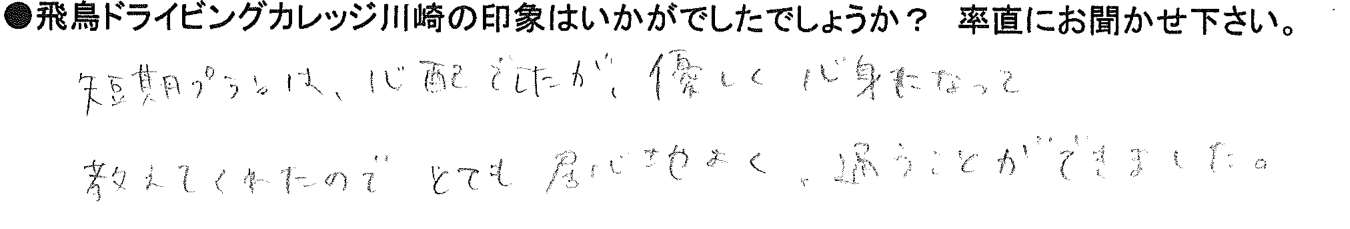 ●飛鳥ドライビングカレッジ川崎の印象はいかがでしたでしょうか？ 率直にお聞かせ下さい。
短期プランは、心配でしたが、優しく心身になって
教えてくれたのでとても居心地よく、通うことができました。